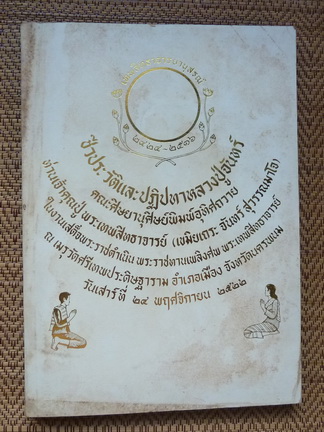 ๒๔๒๔ - ๒๕๑๖
ชีวประวัติและปฏิปทาหลวงปู่จันทร์
คณะศิษยานุศิษย์พิมพ์อุทิศถวาย
ท่านเจ้าคุณปู่ พระเทพสิทธาจารย์ (เขมิยเถระ จันทร์ สุวรรณมาโจ)
ในงานเสด็จพระราชดำเนิน พระราชทานเพลิงศพ พระเทพสิทธาจารย์
ณ เมรุวัดศรีเทพประดิษฐาราม อำเภอเมือง จังหวัดนครพนม
วันเสาร์ที่ ๒๔ พฤศจิกายน ๒๕๒๒